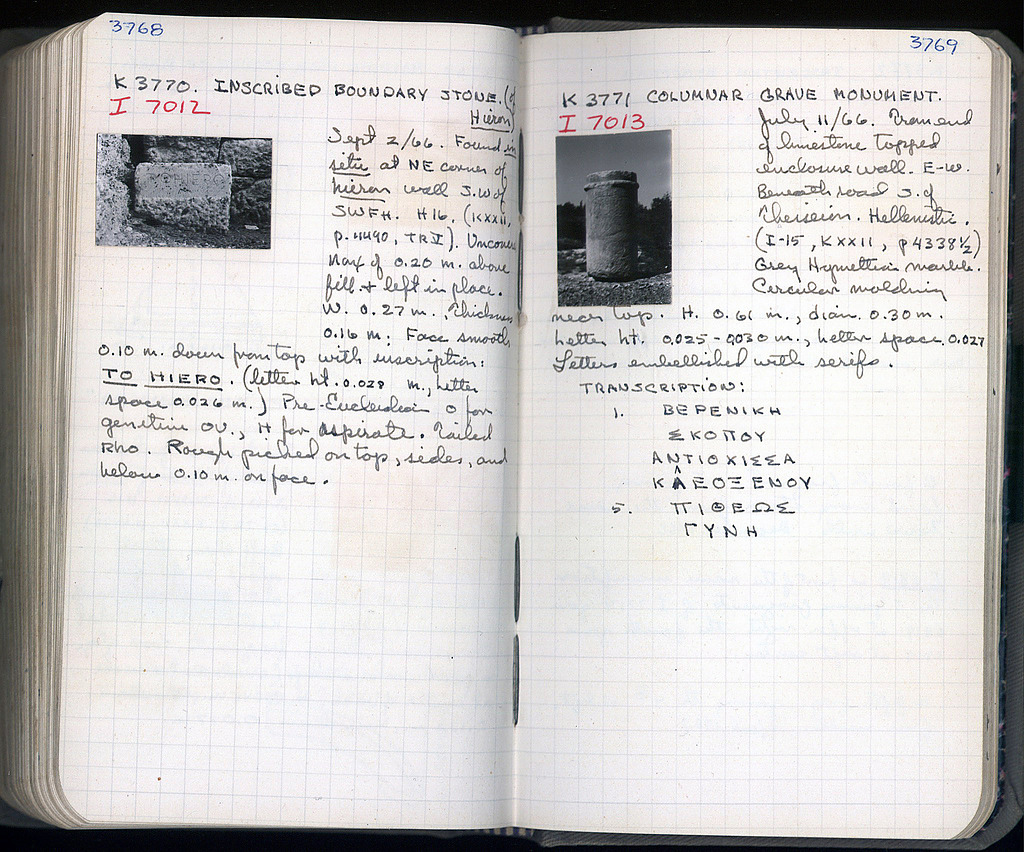 3768
K 3770. INSCRIBED BOUNDARY STONE. (of
Hieron)
I 7012
Sept 2/66. Found in
situ at NE corner of
hieron wall S.W of
SWFH. H16. (KXXII,
p. 4490, TR V). Uncovered
Max of 0.20 m. above
fill + left in place.
W. 0.27 m., Thickness
0.16 m; Face smooth
0.10 m. down from top with inscription:
TO HIERO. (letter ht. 0.028 m., letter
space 0.026 m.) Pre-Euclidean O for
genitive OU., H for aspirate. Tailed
Rho. Rough picked on top, sides, and
below 0.10 m. on face.
3769
K 3771 COLUMNAR GRAVE MONUMENT.
I 7013
July 11/66. From end
of limestone topped
enclosure wall. E-W.
Beneath road S. of
Theiseion. Hellenistic.
(I-15, KXXII, p 4338½)
Grey Hymettian marble.
Circular molding
near top. H. 0.61 m., diam. 0.30 m.
Letter ht. 0.025-0.030 m., letter space 0.027
Letters embellished with serifs.
TRANSCRIPTION:
1. ΒΕΡΕΝΙΚΗ
ΣΚΟΠΟΥ
ΑΝΤΙΟΧΙΣΣΑ
ΚΛΕΟΞΕΝΟΥ
5. ΠΙΘΕΩΣ
ΓΥΝΗ